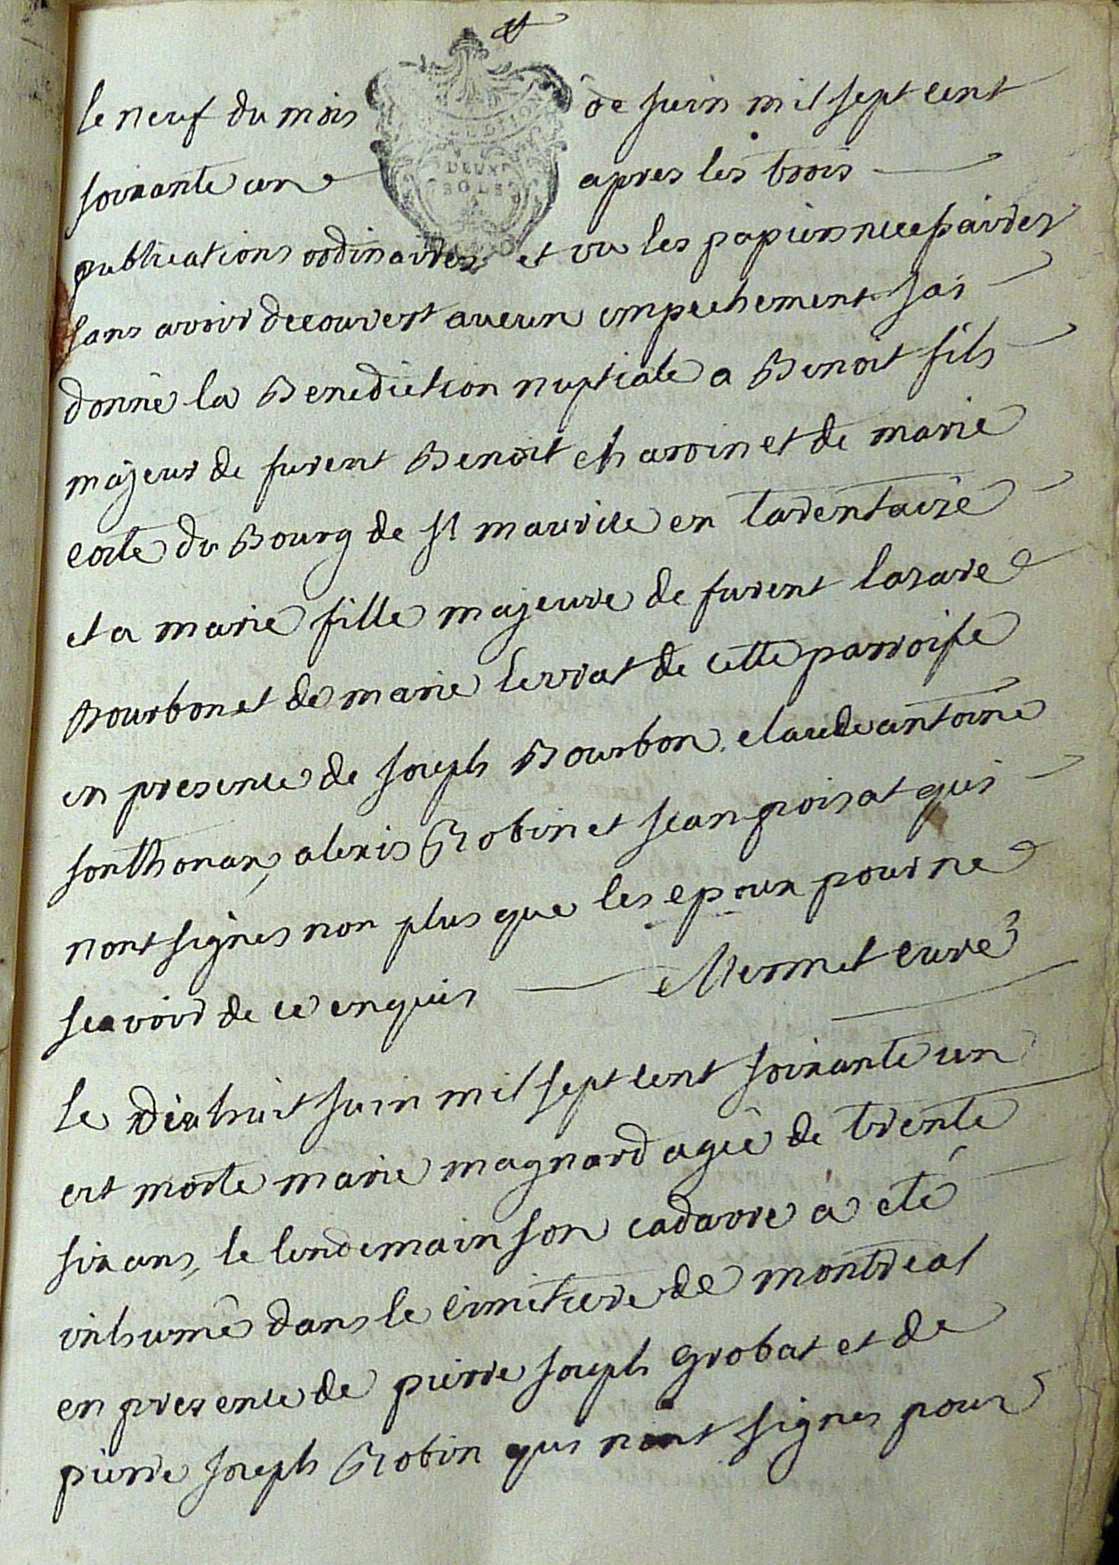 le neuf du mois de juin mil sept cent
DEUX
SOLS
soixante un apres les trois
publications ordinaires et vu les papiers necessaires
sans avoir decouvert aucun empechement jai
donné la Benediction nuptiale a Benoit fils
majeur de furent Benoit charvin et de marie
du Bourg de st maurice en tarentaise
et a marie fille majeure de furent lazare
Bourbon et de marie levrat de cette parroisse
en presence de joseph Bourbon claude antoine
sonthonax, alexis Robin et jean poisat qui
nont signés non plus que les epoux pour ne
scavoir de ce enquis Mermet curé
le dixhuit juin mil sept cent soixante un
est morte marie magnard agée de trente
six ans, le lendemain son cadavre a eté
inhumé dans le cimetiere de montreal
en presence de pierre joseph grobat et de
pierre joseph Robin qui nont signes pour